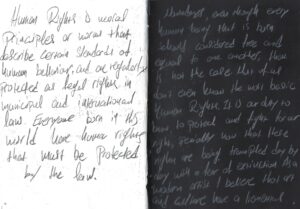 Human Rights is moral
Principles or norms that
describe certain standards of
human behavior, and are regularly
protected as legal rights in
municipal and international
law. Everyone born in this
world have human rights
that must be protected
by the law.
Nowadays, even though every
human being that is born
should considered free and
equal to one another, there
is not the case. Most of us
don't even know the most basic
Human Rights. It is our duty to
have to protect and fight for our
rights, specially now that these
rights are being trampled day by
day with a fear of extinction. As a
modern artist I believe that art
and culture have a